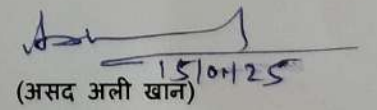 15/01/25
(असद अली खान)